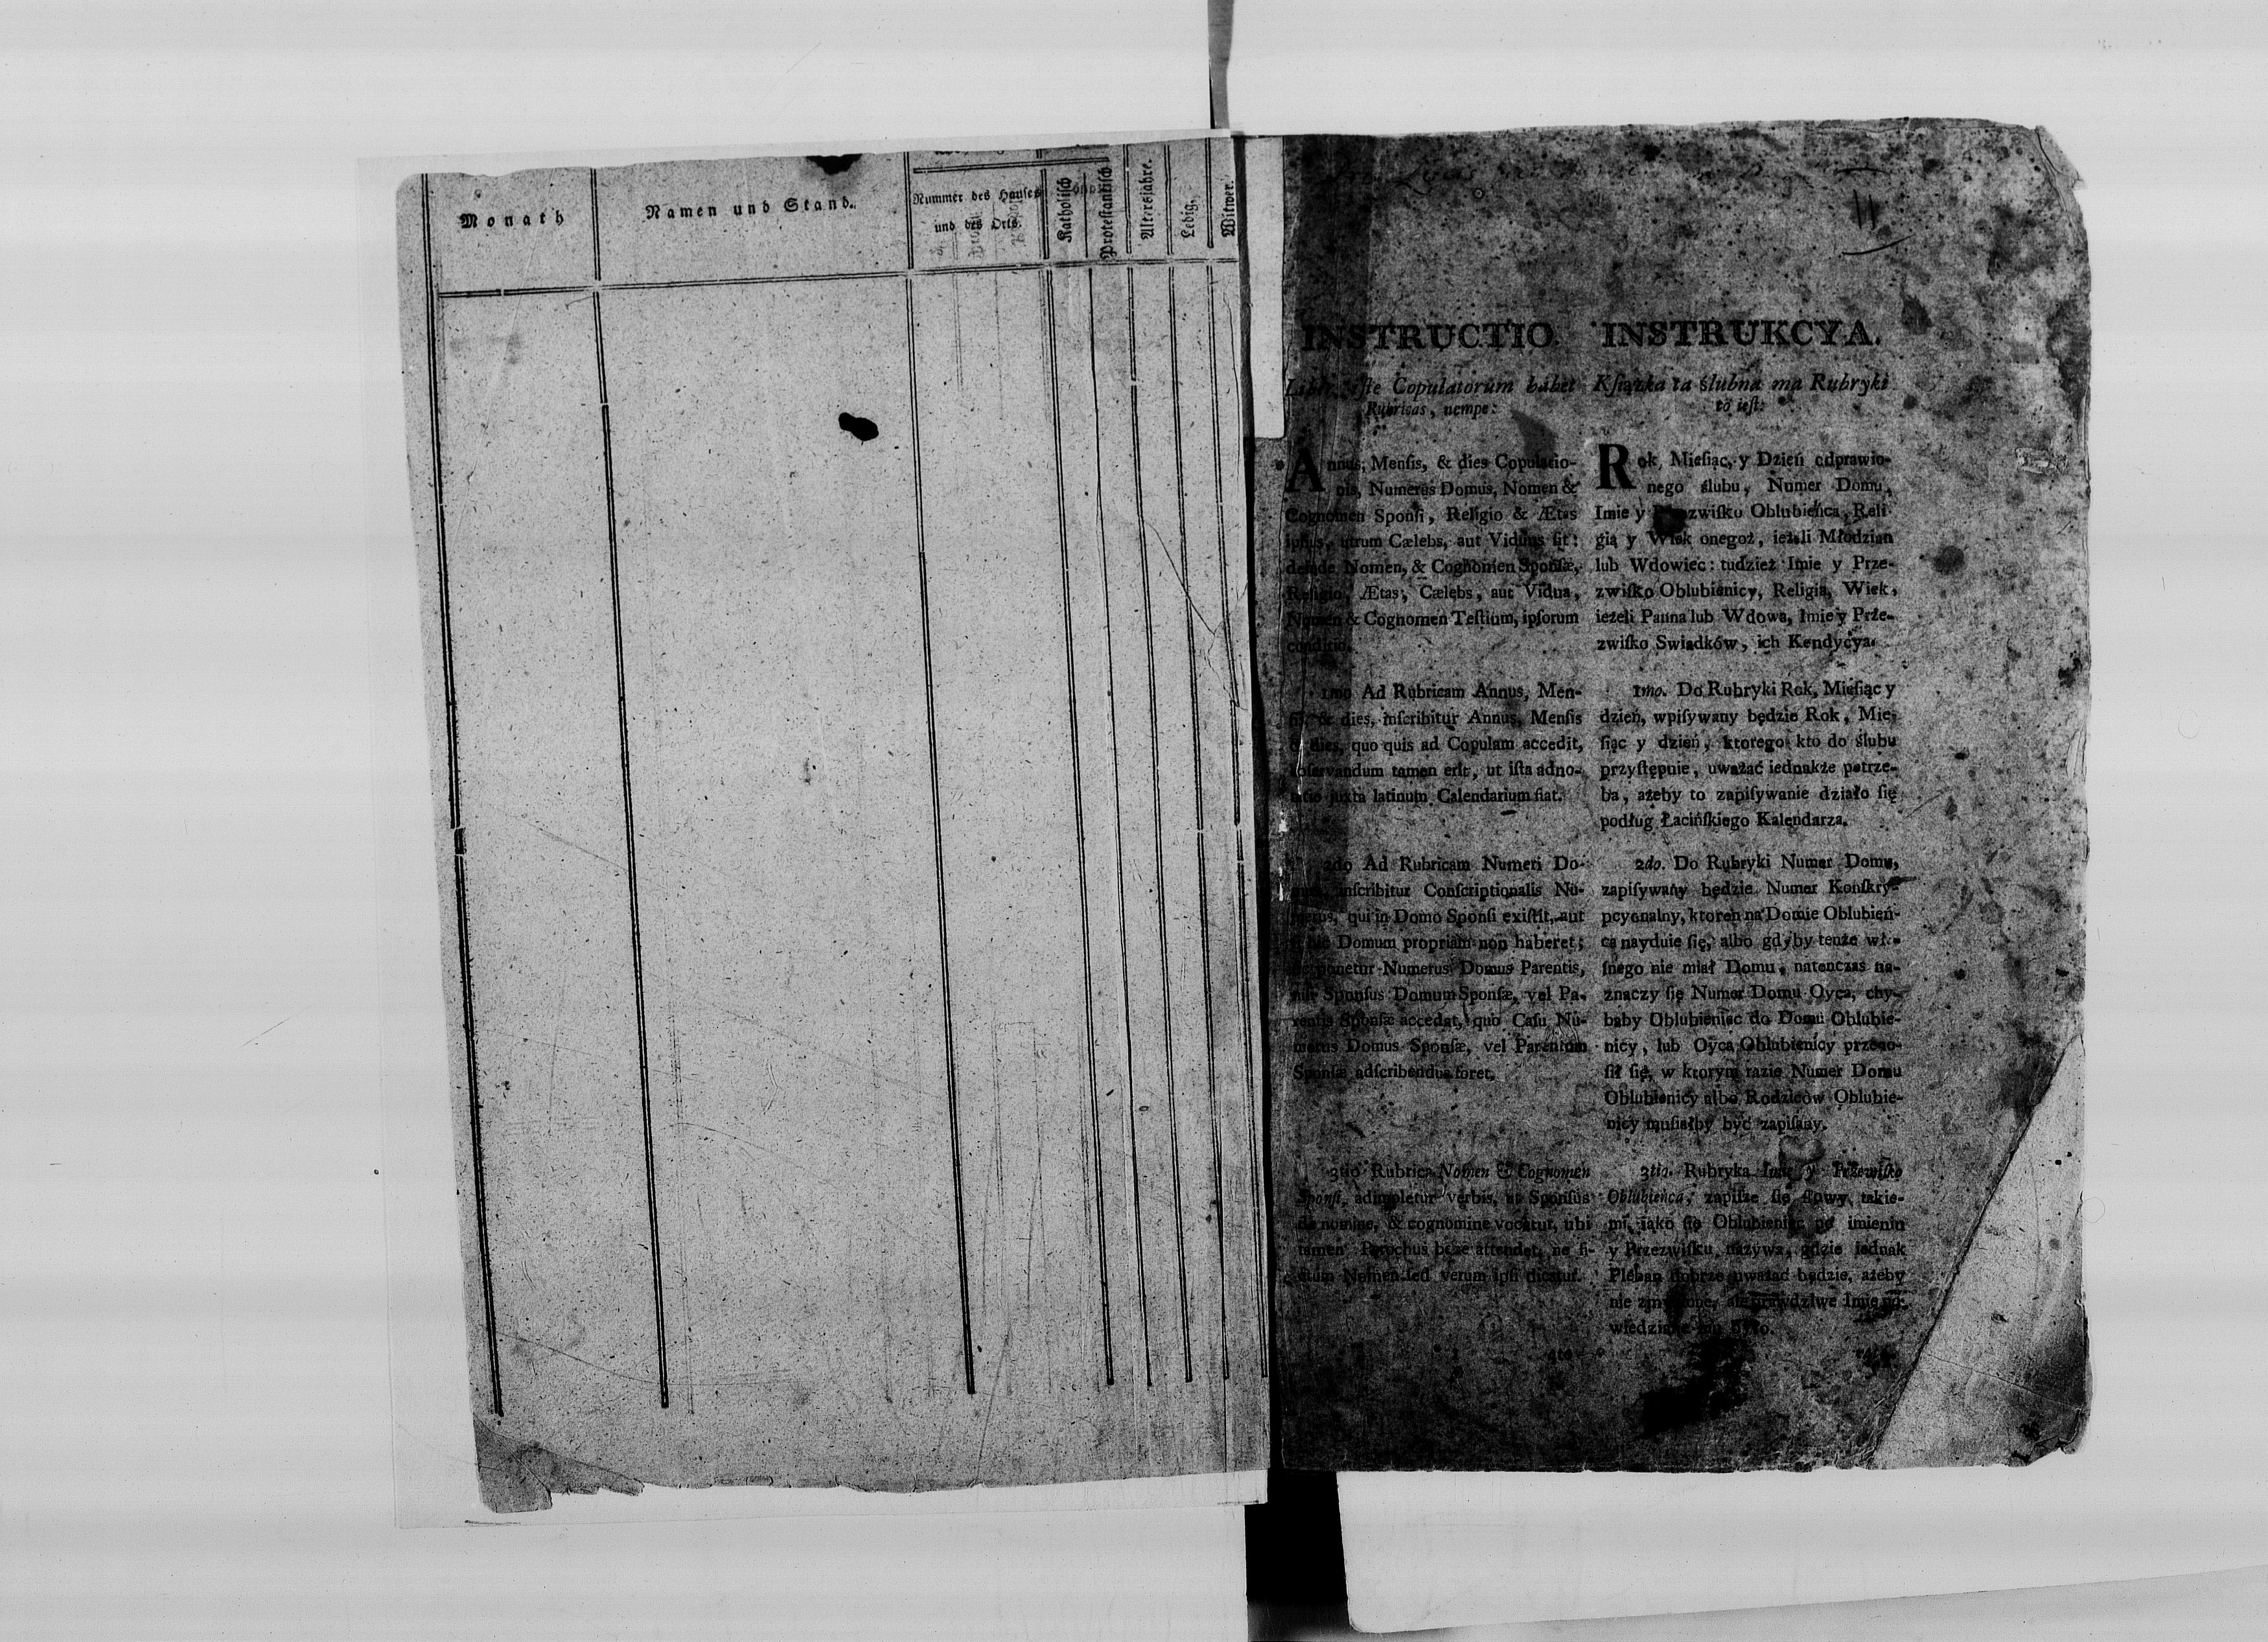 Monath
Namen und Stand.
Nummer des Hauses
und des Orts.
Katholisch
Protestantisch
Altersjahre.
Ledig.
Witwer.
11
INSTRUCTIO.
Liber iſte Copulatorum habet
Rubricas, nempe:
Annus, Menſis, & dies Copulatio-
nis, Numerus Domus, Nomen &
Cognomen Sponſi, Religio & Ætas
ipſius, utrum Cælebs, aut Viduus ſit:
deinde Nomen, & Cognomen Sponſæ,
Religio, Ætas, Cælebs, aut Vidua,
Nomen & Cognomen Teſtium, ipſorum
conditio.
1mo Ad Rubricam Annus, Men-
ſis, & dies, inſcribitur Annus, Menſis
& dies, quo quis ad Copulam accedit,
obſervandum tamen erit, ut iſta adno-
tatio juxta latinum Calendarium fiat.
2do Ad Rubricam Numeri Do-
inſcribitur Conſcriptionalis Nu-
merus, qui in Domo Sponſi exiſtit, aut
Domum propriam non haberet;
ponetur Numerus Domus Parentis,
niſi Sponſus Domum Sponſæ, vel Pa-
rentis Sponſæ accedat, quo Caſu Nu-
merus Domus Sponſæ, vel Parentum
Sponſæ adſcribendus foret.
3tio Rubrica Nomen & Cognomen
Sponſi, adimpletur verbis, ut Sponſus
de nomine, & cognomine vocatur, ubi
tamen Parochus bene attendet, ne fi-
ctum Nomen ſed verum ipſi dicatur.
4to
INSTRUKCYA.
Kſiążka ta ślubna ma Rubryki
to ieſt:
Rok, Mieſiąc, y Dzień odprawio-
nego ślubu, Numer Domu,
Imie y Przezwiſko Oblubieńca, Reli-
gią y Wiek onegoż, ieżeli Młodzian
lub Wdowiec: tudzież Imie y Prze-
zwiſko Oblubienicy, Religia, Wiek,
ieżeli Panna lub Wdowa, Imie y Prze-
zwiſko Swiadków, ich Kondycya.
1mo. Do Rubryki Rok, Mieſiąc y
dzień, wpiſywany będzie Rok, Mie-
ſiąc y dzień, ktorego kto do ślubu
przyſtępuie, uważać iednakże potrze-
ba, ażeby to zapiſywanie działo ſię
podług Łacińſkiego Kalendarza.
2do. Do Rubryki Numer Domu,
zapiſywany będzie Numer Konſkry-
pcyonalny, ktoren na Domie Oblubień-
ca nayduie ſię, albo gdyby tenże wła-
ſnego nie miał Domu, natenczas na-
znaczy ſię Numer Domu Oyca, chy-
baby Oblubieniec do Domu Oblubie-
nicy, lub Oyca Oblubienicy przeno-
ſił ſię, w ktorym razie Numer Domu
Oblubienicy albo Rodzicow Oblubie-
nicy muſiałby być zapiſany.
3tio. Rubryka Imie y Przezwiſko
Oblubieńca, zapiſze ſię ſłowy takie-
mi, iako ſię Oblubieniec po imieniu
y Przezwiſku, nazywa, gdzie iednak
Pleban dobrze uważać będzie, ażeby
nie zmyślone, ale prawdziwe Imie po-
wiedziane mu było.